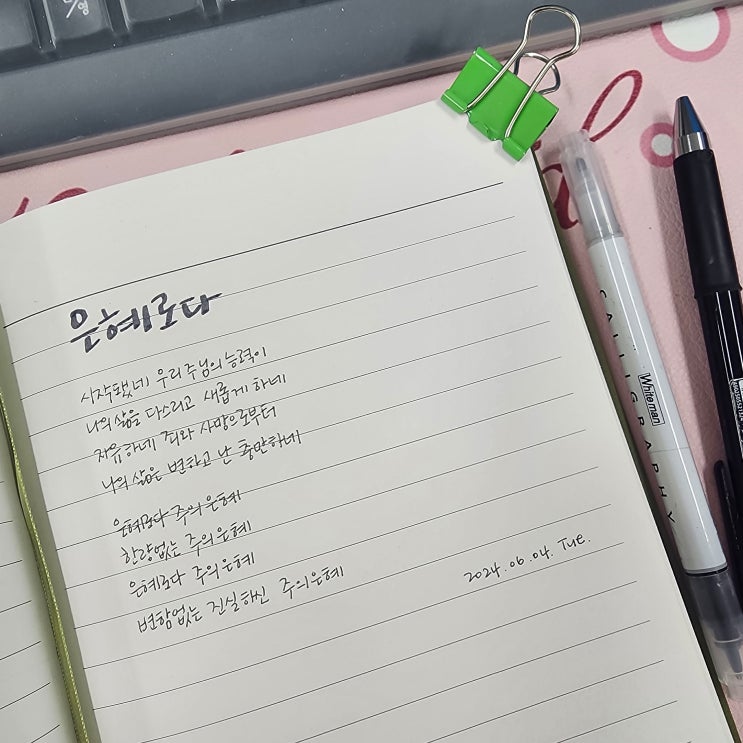 은혜로다
시작됐네 우리 주님의 능력이
나의 삶을 다스리고 새롭게 하네
자유하네 죄와 사망으로부터
나의 삶은 변하고 난 충만하네
은혜로다 주의 은혜
한량없는 주의 은혜
은혜로다 주의 은혜
변함없는 진실하신 주의 은혜
2024.06.04. Tue.
CALLIGRAPHY
Whiteman